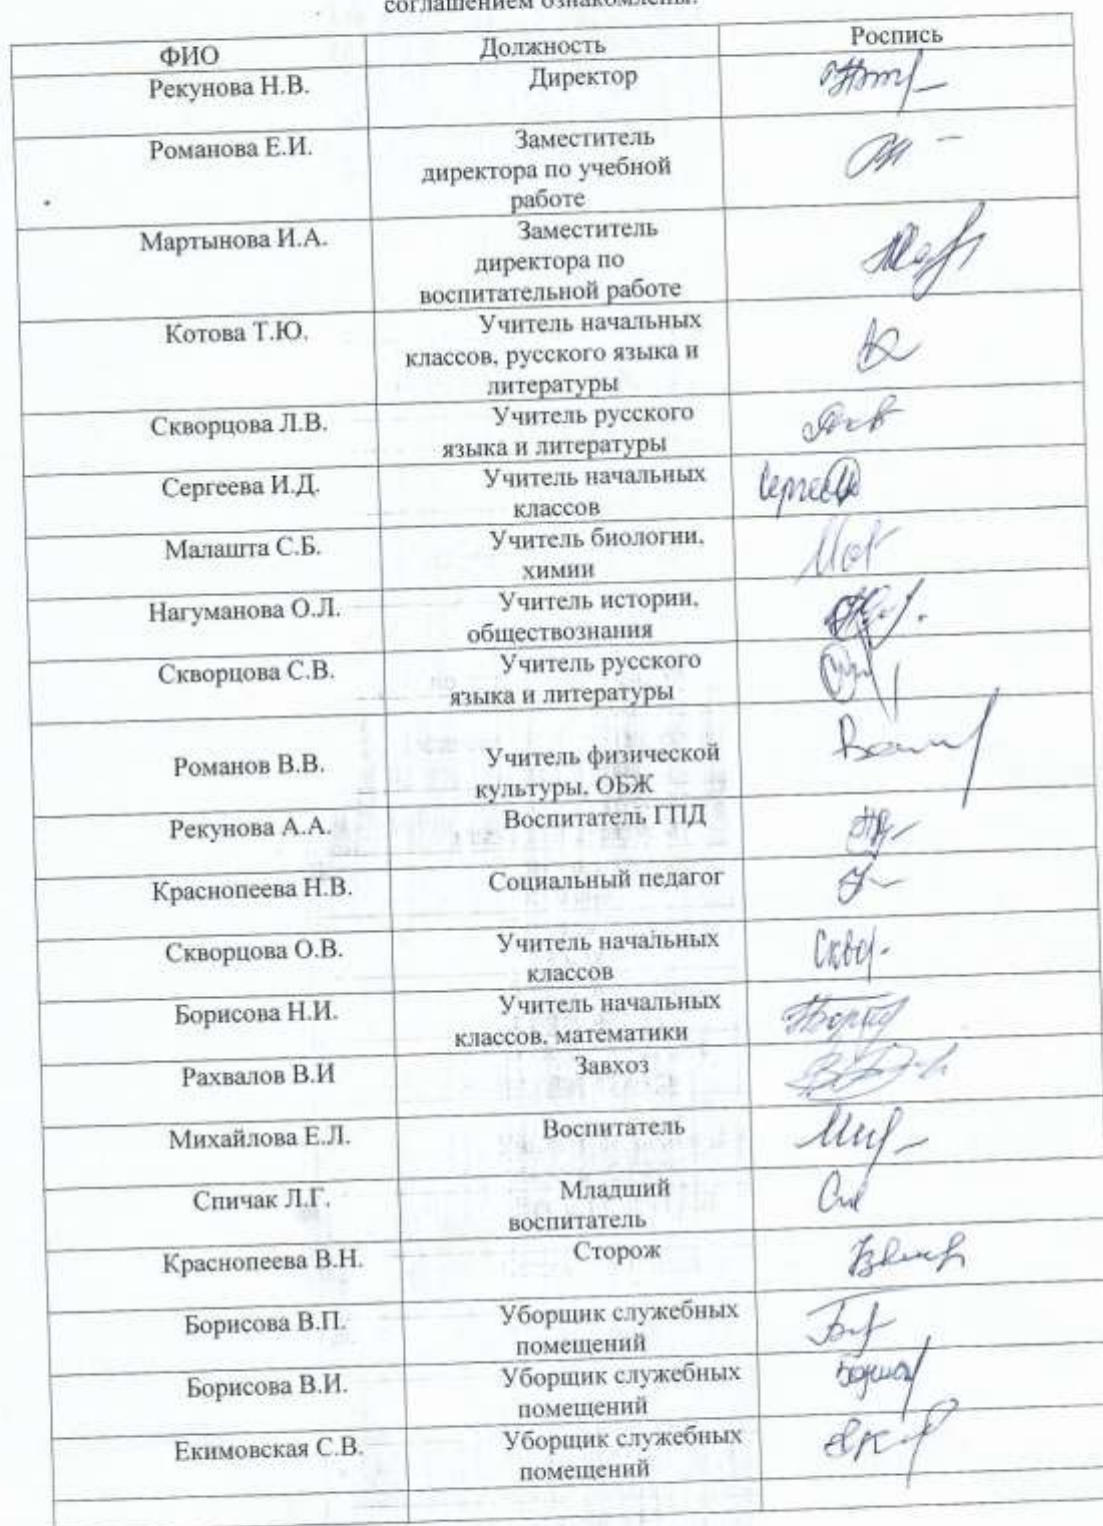 соглашением ознакомлены:
ФИО Должность Роспись
Рекунова Н.В. Директор
Романова Е.И. Заместитель
директора по учебной
работе
Мартынова И.А. Заместитель
директора по
воспитательной работе
Котова Т.Ю. Учитель начальных
классов, русского языка и
литературы
Скворцова Л.В. Учитель русского
языка и литературы
Сергеева И.Д. Учитель начальных
классов
Малашта С.Б. Учитель биологии,
химии
Нагуманова О.Л. Учитель истории,
обществознания
Скворцова С.В. Учитель русского
языка и литературы
Романов В.В. Учитель физической
культуры, ОБЖ
Рекунова А.А. Воспитатель ГПД
Краснопеева Н.В. Социальный педагог
Скворцова О.В. Учитель начальных
классов
Борисова Н.И. Учитель начальных
классов, математики
Рахвалов В.И Завхоз
Михайлова Е.Л. Воспитатель
Спичак Л.Г. Младший
воспитатель
Краснопеева В.Н. Сторож
Борисова В.П. Уборщик служебных
помещений
Борисова В.И. Уборщик служебных
помещений
Екимовская С.В. Уборщик служебных
помещений